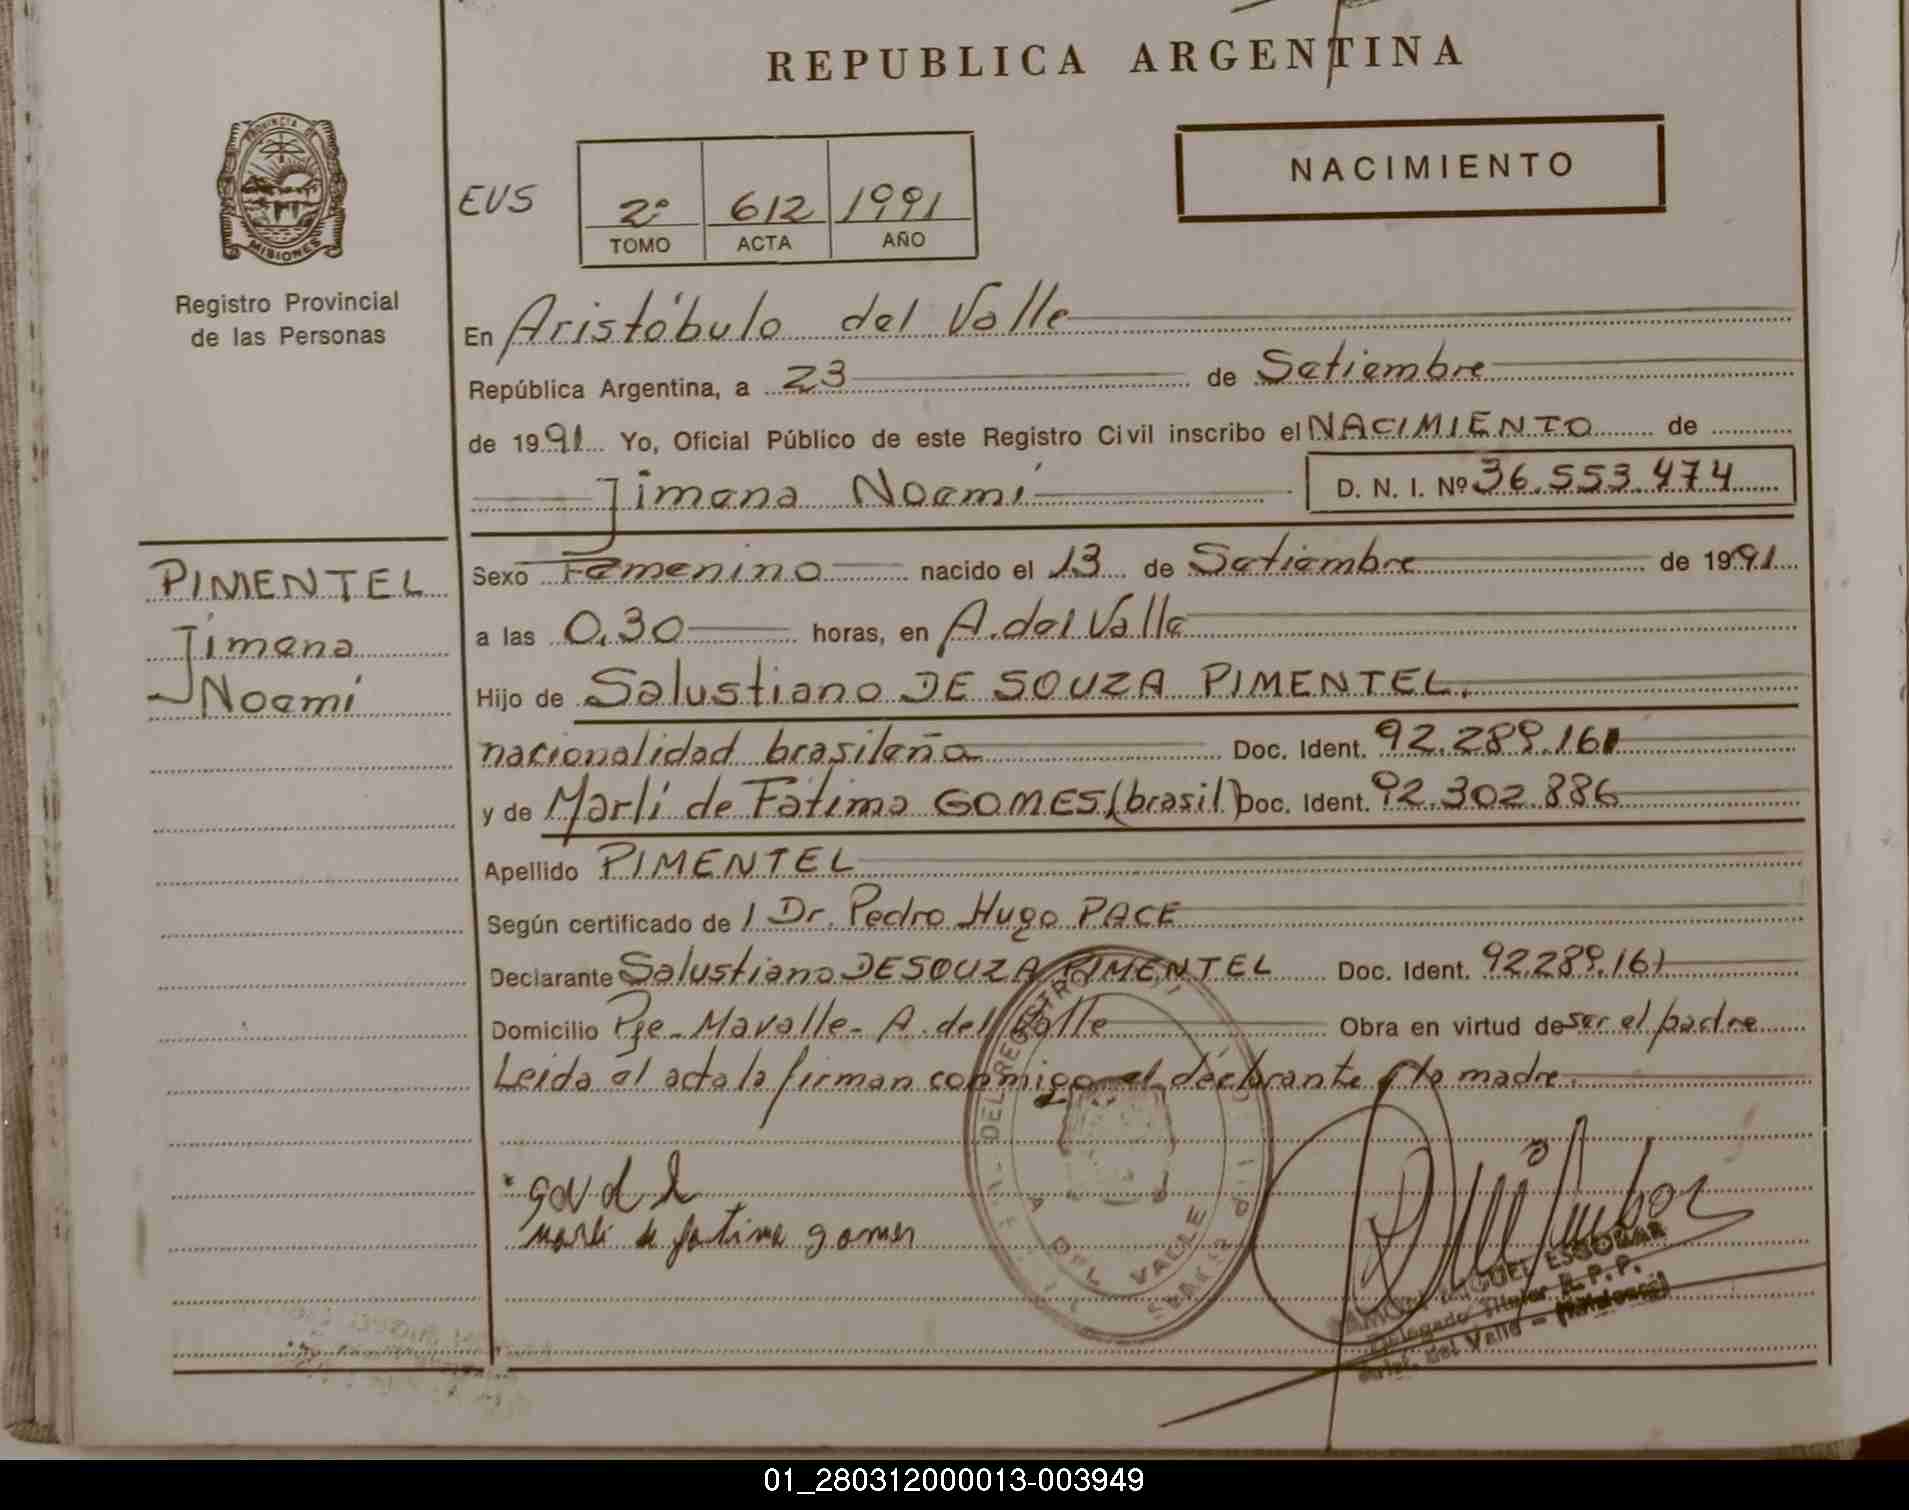 REPUBLICA ARGENTINA
NACIMIENTO
PROVINCIA DE
MISIONES
Registro Provincial
de las Personas
EUS
2º 612 1991
TOMO ACTA AÑO
En Aristóbulo del Valle
República Argentina, a 23 de Setiembre
de 1991 Yo, Oficial Público de este Registro Civil inscribo el NACIMIENTO de
Jimena Noemí D. N. I. Nº 36.553.474
PIMENTEL
Jimena
Noemí
Sexo Femenino nacido el 13 de Setiembre de 1991
a las 0,30 horas, en A. del Valle
Hijo de Salustiano DE SOUZA PIMENTEL.
nacionalidad brasileña Doc. Ident. 92.289.161
y de Marlí de Fátima GOMES (brasil) Doc. Ident. 92.302.886
Apellido PIMENTEL
Según certificado de / Dr. Pedro Hugo PACE
Declarante Salustiano DE SOUZA PIMENTEL Doc. Ident. 92.289.161
Domicilio Pje. Mavalle - A. del Valle Obra en virtud de ser el padre
Leida el acta la firman conmigo el declarante y la madre.
DEL REGISTRO
DEL VALLE
marli de fatima gomes
RAMON MIGUEL ESCOBAR
Delegado Titular R. P. P.
Arist. del Valle - (Misiones)
01_280312000013-003949